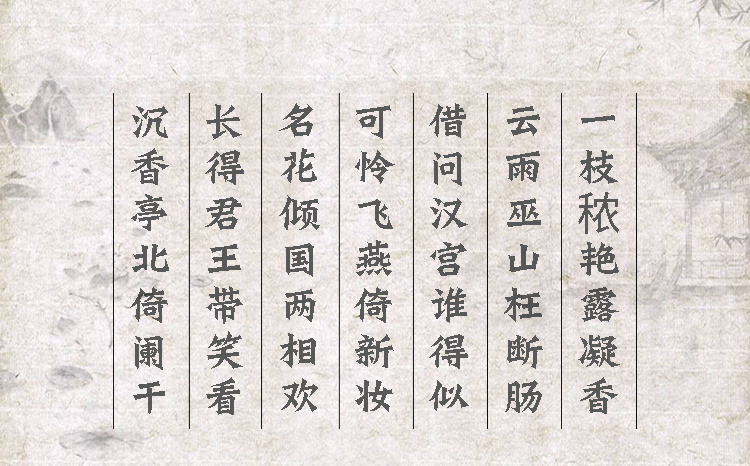 一枝秾艳露凝香
云雨巫山枉断肠
借问汉宫谁得似
可怜飞燕倚新妆
名花倾国两相欢
长得君王带笑看
沉香亭北倚阑干